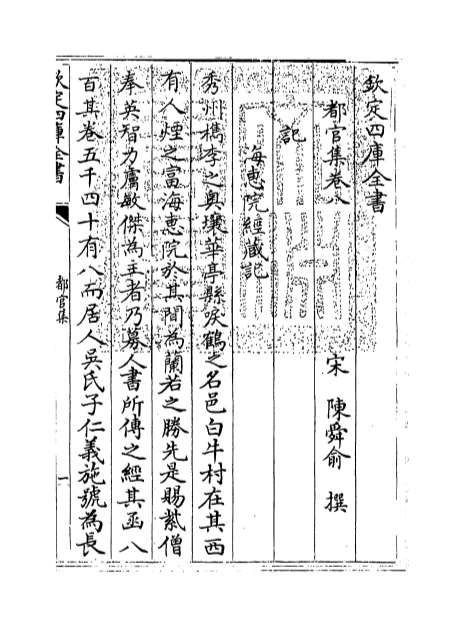 欽定四庫全書
都官集卷八
宋 陳舜俞 撰
記
海惠院經藏記
秀州檇李之奥壤華亭縣唳鶴之名邑白牛村在其西
有人煙之富海惠院於其間為蘭若之勝先是賜紫僧
奉英智力膚敏傑為主者乃募人書所傳之經其函八
百其卷五千四十有八而居人吳氏子仁義施號為長
欽定四庫全書
都官集
一